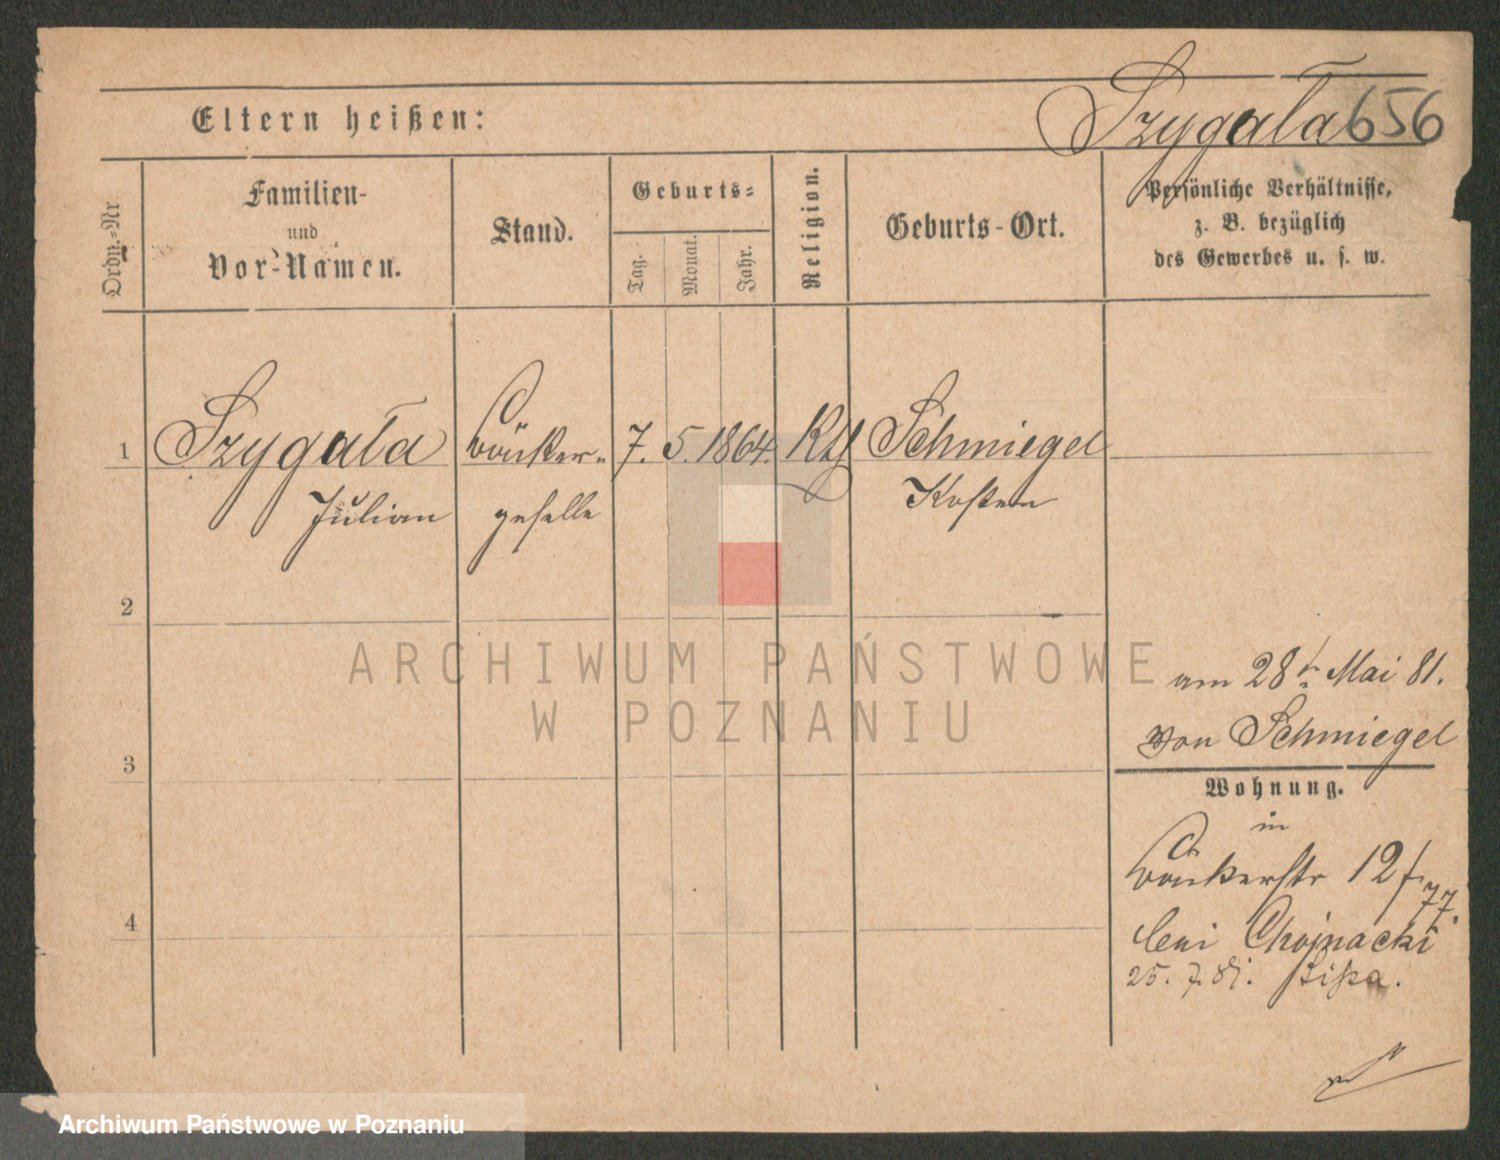 Szygała 656
Eltern heißen:
Ordn.-Nr
Familien-
und
Vor-Namen.
Stand.
Geburts-
Tag.
Monat.
Jahr.
Religion.
Geburts-Ort.
Persönliche Verhältnisse,
z. B. bezüglich
des Gewerbes u. s. w.
1 Szygała 7. 5. 1864. Kth Schmiegel
Julian geselle Kosten
2
am 28 Mai 81.
von Schmiegel
3
Wohnung.
in
12/77.
4
bei Chojnacki
25. 7. 81. Lissa.
ARCHIWUM PAŃSTWOWE
W POZNANIU
Archiwum Państwowe w Poznaniu